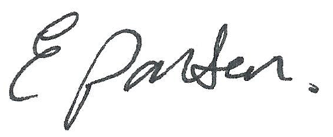 E Parsen.